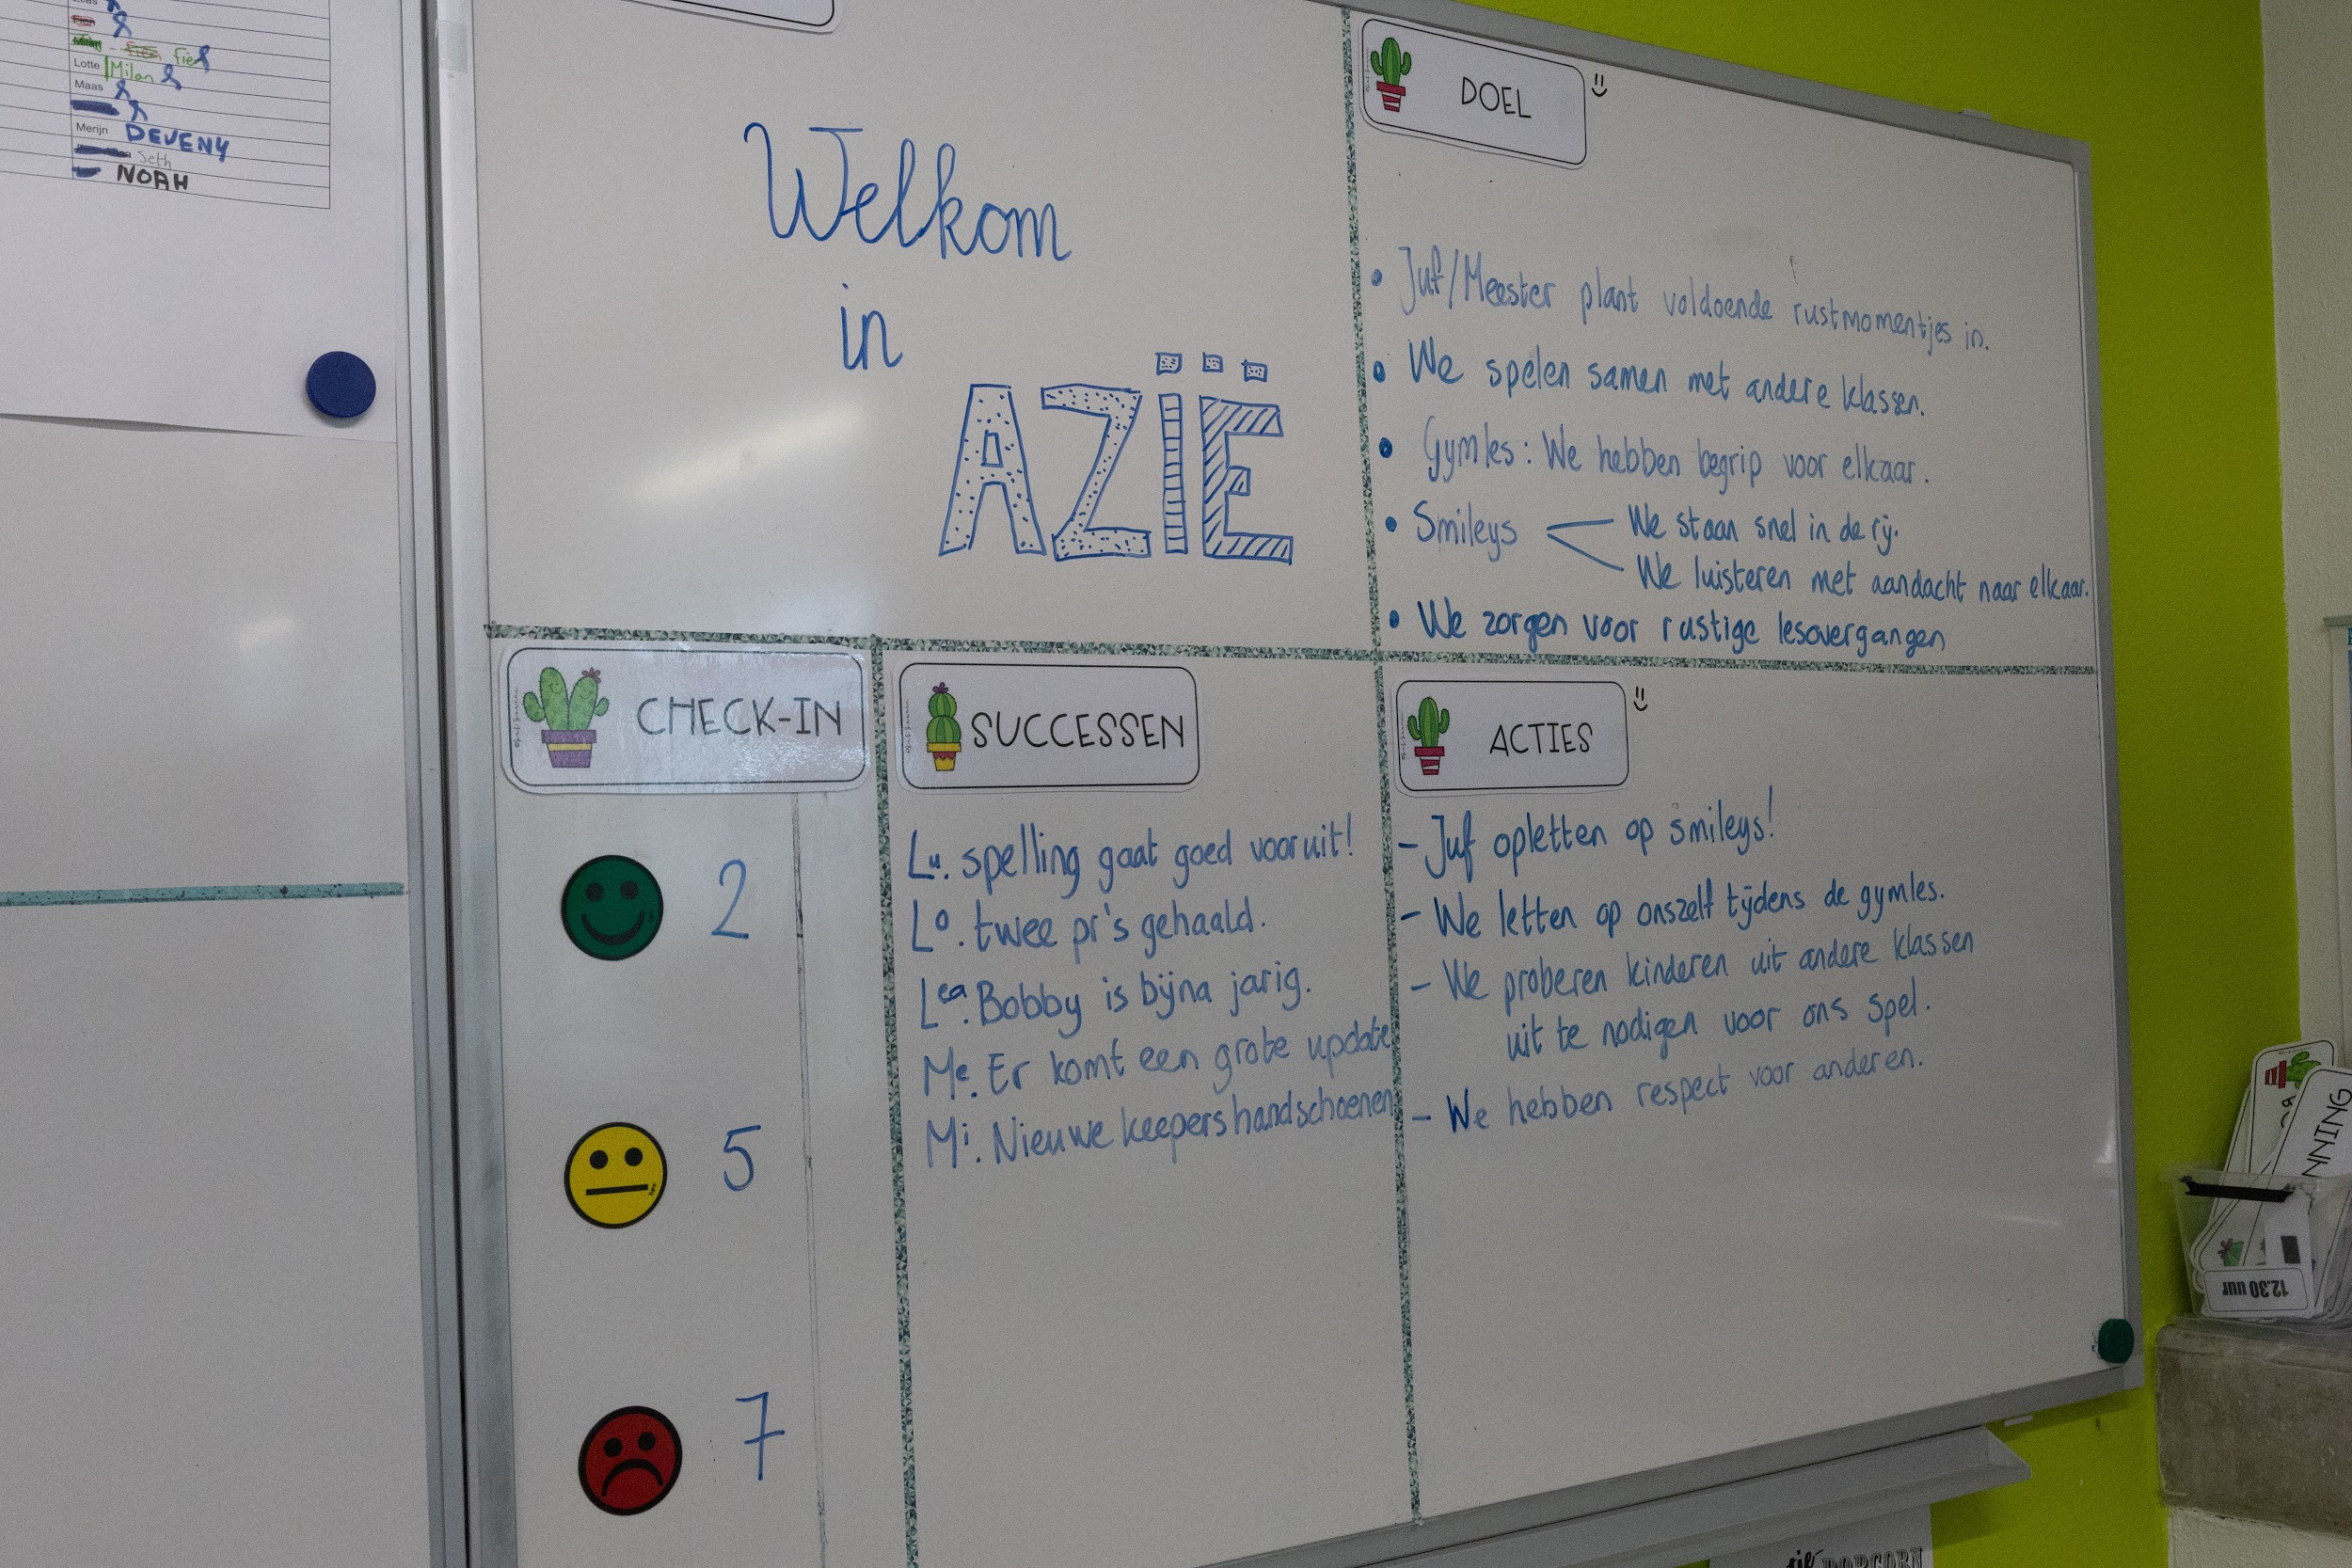 fien
Lotte Milan
Maas
Merijn DEVENY
Seth
NOAH
Welkom
in
AZÏË
DOEL
• Juf/Meester plant voldoende rustmomentjes in.
• We spelen samen met andere klassen.
• Gymles: We hebben begrip voor elkaar.
• Smileys
We staan snel in de rij.
We luisteren met aandacht naar elkaar.
• We zorgen voor rustige lesovergangen
CHECK-IN
2
5
7
SUCCESSEN
Lu. spelling gaat goed vooruit!
Lo. twee pr's gehaald.
Lea. Bobby is bijna jarig.
Me. Er komt een grote update
Mi. Nieuwe keepershandschoenen
ACTIES
- Juf opletten op smileys!
- We letten op onszelf tijdens de gymles.
- We proberen kinderen uit andere klassen
uit te nodigen voor ons spel.
- We hebben respect voor anderen.
NNING
12.30 uur
POPCORN